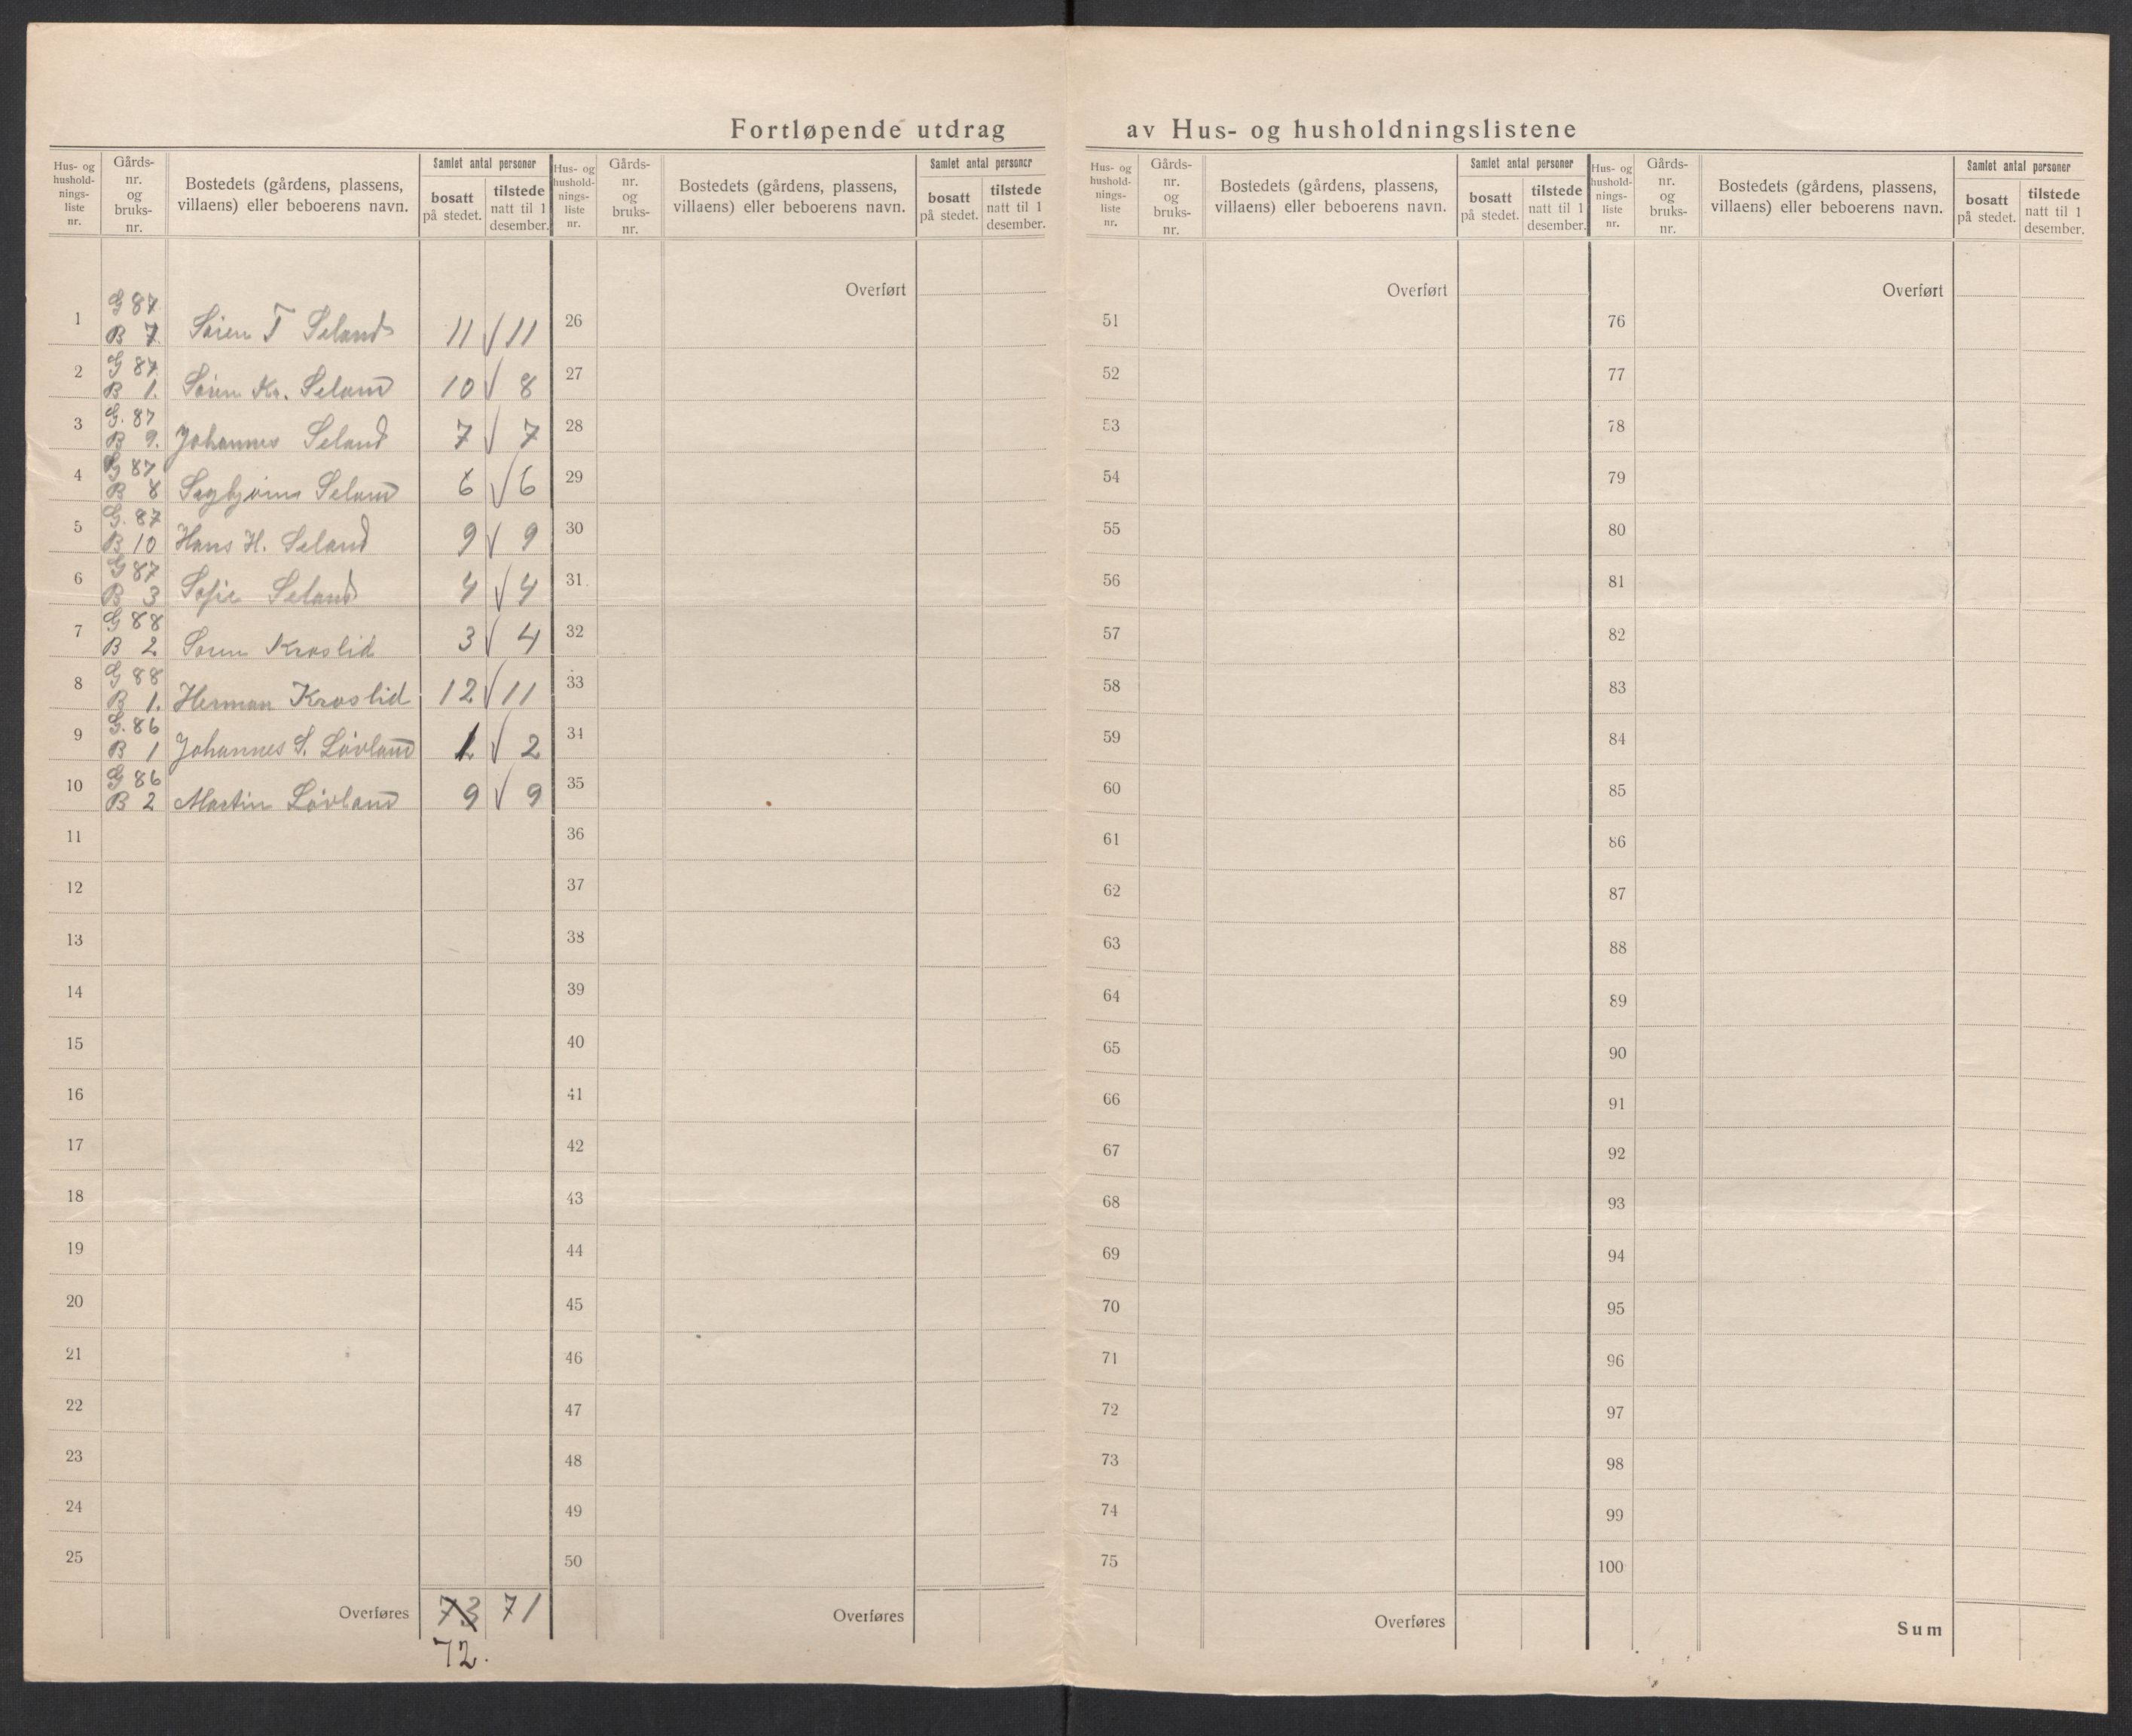 Fortløpende utdrag av Hus- og husholdningslistene
Hus- og husholdnings-liste nr.
Gårds-nr. og bruks-nr.
Bostedets (gårdens, plassens, villaens) eller beboerens navn.
Samlet antal personer
bosatt på stedet.
tilstede natt til 1 desember.
1 G 87 B 7. Søren T Seland 11 √ 11
2 G 87. B 1. Søren Kr. Seland 10 √ 8
3 G. 87 B 9. Johannes Seland 7 √ 7
4 G 87 B 8 Seland 6 √ 6
5 G. 87 B 10 Hans H. Seland 9 √ 9
6 G 87 B 3 Sofie Seland 4 √ 4
7 G 88 B 2 Søren Kroslid 3 √ 4
8 G 88 B 1. Herman Kroslid 12 √ 11
9 G. 86 B 1 Johannes S. Løvland 1 √ 2
10 G 86 B 2 Martin Løvland 9 √ 9
11
12
13
14
15
16
17
18
19
20
21
22
23
24
25
Overføres 73 71
72.
Hus- og hushold-nings-liste nr.
Gårds-nr. og bruks-nr.
Bostedets (gårdens, plassens, villaens) eller beboerens navn.
Samlet antal personer
bosatt på stedet.
tilstede natt til 1 desember.
Overført
26
27
28
29
30
31
32
33
34
35
36
37
38
39
40
41
42
43
44
45
46
47
48
49
50
Overføres
Hus- og hushold-nings-liste nr.
Gårds-nr. og bruks-nr.
Bostedets (gårdens, plassens, villaens) eller beboerens navn.
Samlet antal personer
bosatt på stedet.
tilstede natt til 1 desember.
Overført
51
52
53
54
55
56
57
58
59
60
61
62
63
64
65
66
67
68
69
70
71
72
73
74
75
Overføres
Hus- og hushold-nings-liste nr.
Gårds-nr. og bruks-nr.
Bostedets (gårdens, plassens, villaens) eller beboerens navn.
Samlet antal personer
bosatt på stedet.
tilstede natt til 1 desember.
Overført
76
77
78
79
80
81
82
83
84
85
86
87
88
89
90
91
92
93
94
95
96
97
98
99
100
Sum